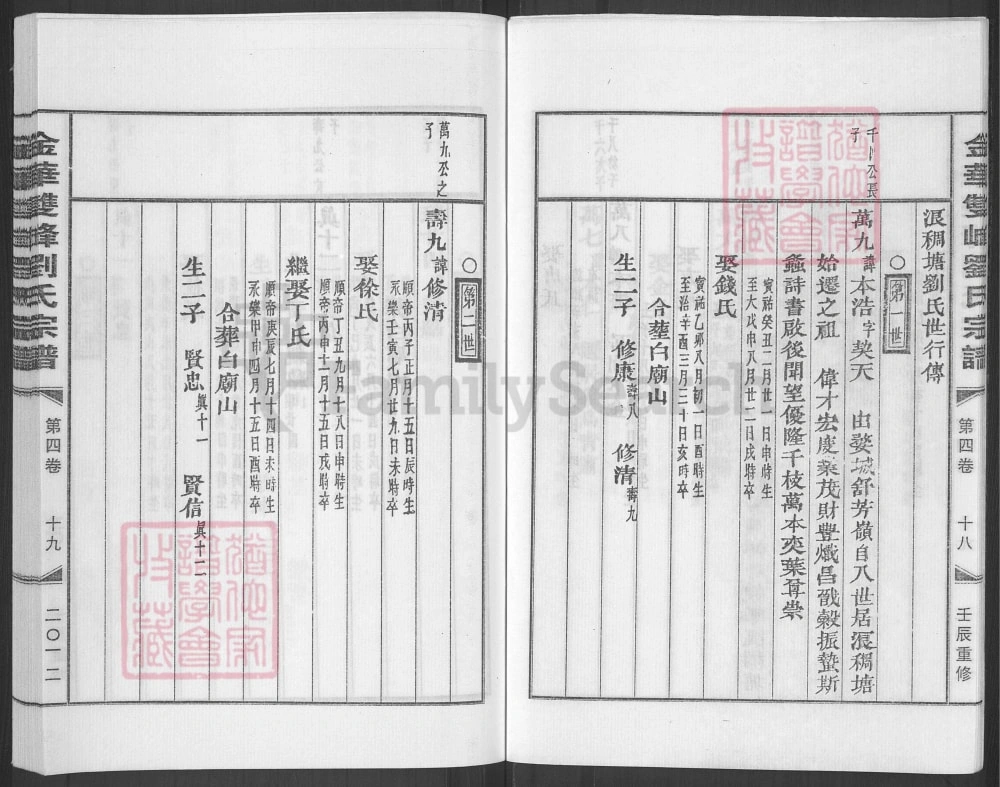 金華雙峰劉氏宗譜 第四卷 十八 壬辰重修
浪稠塘劉氏世行傳
○第一世
千八公長子
萬九諱本浩字契天 由婺城舒芳嶺自入世居浪稠塘
始遷之祖 偉才宏慶業茂財豐熾昌戩穀振蟄斯
螽詩書啟後聞望優隆千枝萬本奕葉尊崇
寶祐癸丑二月廿一日申時生
至大戊申八月廿二日戌時卒
娶錢氏
寶祐乙卯八月初一日酉時生
至治辛酉三月三十日亥時卒
合塟白廟山
生二子 修康壽八 修清壽九
○第二世
萬九公之子
壽九諱修清
順帝丙子正月十五日辰時生
永樂壬寅七月廿九日未時卒
娶徐氏
順帝丁丑九月十八日申時生
順帝丙申十二月十五日戌時卒
繼娶丁氏
順帝庚辰七月十四日未時生
永樂甲申四月十五日酉時卒
合葬白廟山
生二子 賢忠眞十一 賢信眞十二
金華雙峰劉氏宗譜 第四卷 十九 二〇一二
FamilySearch